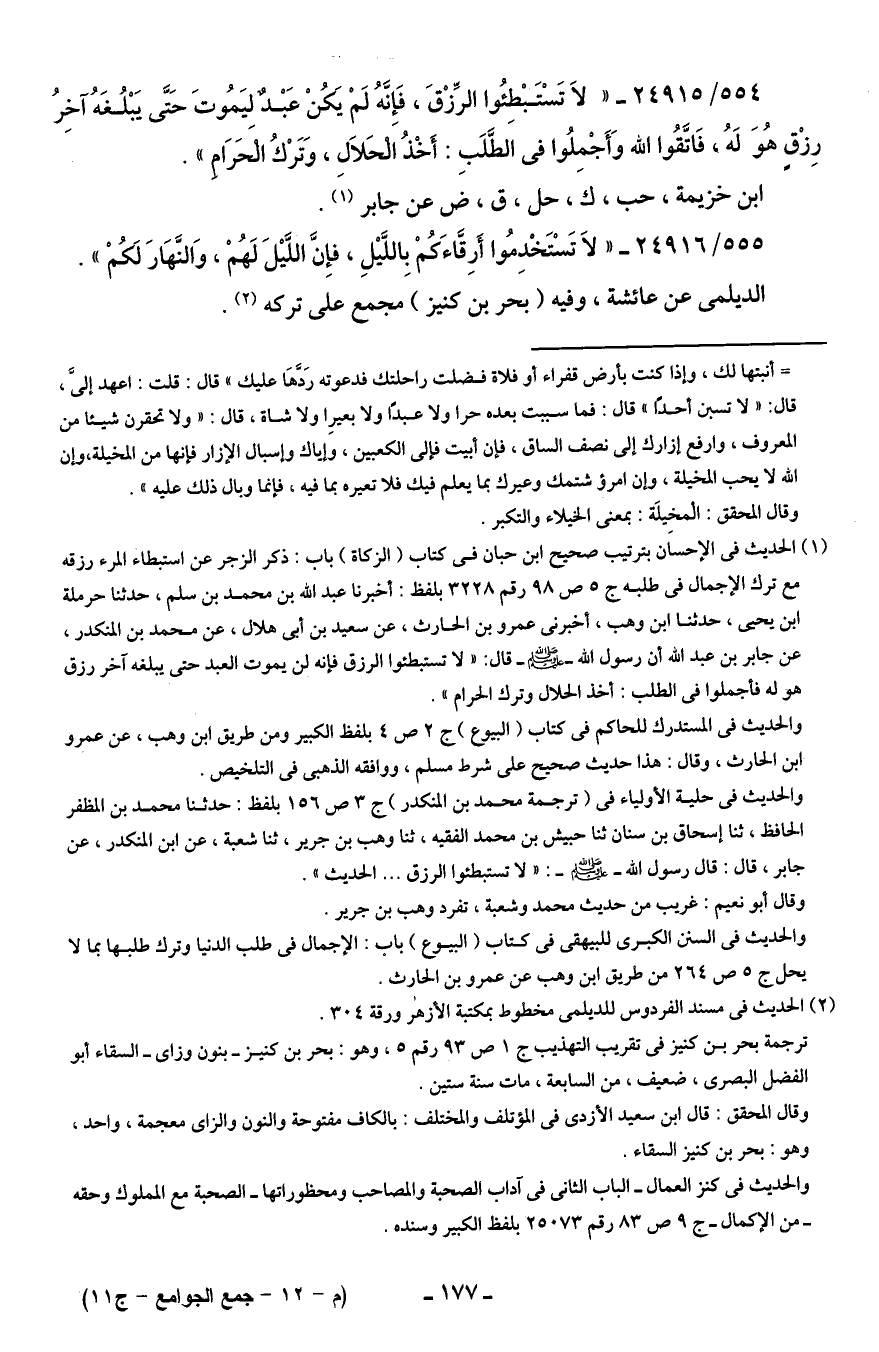 ٢٤٩١٥/٥٥٤ ـ « لاَ تَسْتَبْطِئُوا الرِّزْقَ ، فَإِنَّهُ لَمْ يَكُنْ عَبْدٌ لِيَمُوتَ حَتَّى يَبْلُغَهُ آخِرُ
رِزْقٍ هُوَ لَهُ ، فَاتَّقُوا الله وَأَجْمِلُوا فى الطَّلَبِ : أَخْذُ الْحَلاَلِ ، وَتَرْكُ الْحَرَامِ » .
ابن خزيمة ، حب ، ك ، حل ، ق ، ض عن جابر (١) .
٢٤٩١٦/٥٥٥ ـ « لاَ تَسْتَخْدِمُوا أَرِقَّاءَكُمْ بِاللَّيْلِ ، فَإِنَّ اللَّيْلَ لَهُمْ ، وَالنَّهَارَ لَكُمْ » .
الديلمى عن عائشة ، وفيه ( بحر بن كنيز ) مجمع على تركه (٢) .
= أنبتها لك ، وإذا كنت بأرض قفراء أو فلاة فضلت راحلتك فدعوته رَدَّهَا عليك » قال : قلت : اعهد إلىَّ ،
قال: « لا تسبن أحدًا » قال : فما سببت بعده حرا ولا عبدًا ولا بعيرا ولا شاة ، قال : « ولا تحقرن شيئا من
المعروف ، وارفع إزارك إلى نصف الساق ، فإن أبيت فإلى الكعبين ، وإياك وإسبال الإزار فإنها من المخيلة،وإن
الله لا يحب المخيلة ، وإن امرؤ شتمك وعيرك بما يعلم فيك فلا تعيره بما فيه ، فإنما وبال ذلك عليه » .
وقال المحقق : الْمخِيلَة : بمعنى الخيلاء والتكبر .
(١) الحديث فى الإحسان بترتيب صحيح ابن حبان فى كتاب ( الزكاة ) باب : ذكر الزجر عن استبطاء المرء رزقه
مع ترك الإجمال فى طلبه ج ٥ ص ٩٨ رقم ٣٢٢٨ بلفظ : أخبرنا عبد الله بن محمد بن سلم ، حدثنا حرملة
ابن يحيى ، حدثنا ابن وهب ، أخبرنى عمرو بن الحارث ، عن سعيد بن أبى هلال ، عن محمد بن المنكدر ،
عن جابر بن عبد الله أن رسول الله ـ ﷺ ـ قال: « لا تستبطئوا الرزق فإنه لن يموت العبد حتى يبلغه آخر رزق
هو له فأجملوا فى الطلب : أخذ الحلال وترك الحرام » .
والحديث فى المستدرك للحاكم فى كتاب ( البيوع ) ج ٢ ص ٤ بلفظ الكبير ومن طريق ابن وهب ، عن عمرو
ابن الحارث ، وقال : هذا حديث صحيح على شرط مسلم ، ووافقه الذهبى فى التلخيص .
والحديث فى حلية الأولياء فى ( ترجمة محمد بن المنكدر ) ج ٣ ص ١٥٦ بلفظ : حدثنا محمد بن المظفر
الحافظ ، ثنا إسحاق بن سنان ثنا حبيش بن محمد الفقيه ، ثنا وهب بن جرير ، ثنا شعبة ، عن ابن المنكدر ، عن
جابر ، قال : قال رسول الله ـ ﷺ ـ : « لا تستبطئوا الرزق ... الحديث » .
وقال أبو نعيم : غريب من حديث محمد وشعبة ، تفرد وهب بن جرير .
والحديث فى السنن الكبرى للبيهقى فى كتاب ( البيوع ) باب : الإجمال فى طلب الدنيا وترك طلبها بما لا
يحل ج ٥ ص ٢٦٤ من طريق ابن وهب عن عمرو بن الحارث .
(٢) الحديث فى مسند الفردوس للديلمى مخطوط بمكتبة الأزهر ورقة ٣٠٤ .
ترجمة بحر بن كنيز فى تقريب التهذيب ج ١ ص ٩٣ رقم ٥ ، وهو : بحر بن كنيز ـ بنون وزاى ـ السقاء أبو
الفضل البصرى ، ضعيف ، من السابعة ، مات سنة ستين .
وقال المحقق : قال ابن سعيد الأزدى فى المؤتلف والمختلف : بالكاف مفتوحة والنون والزاى معجمة ، واحد ،
وهو : بحر بن كنيز السقاء .
والحديث فى كنز العمال ـ الباب الثانى فى آداب الصحبة والمصاحب ومحظوراتها ـ الصحبة مع المملوك وحقه
ـ من الإكمال ـ ج ٩ ص ٨٣ رقم ٢٥٠٧٣ بلفظ الكبير وسنده .
ـ ١٧٧ ـ (م - ١٢ - جمع الجوامع - ج١١)